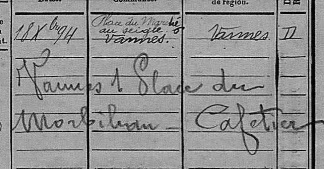 de région.
18 Xbre 94 Place du Marché au seigle 5 Vannes. Vannes. D
Vannes 1 Place du
Morbihan - Cafetier